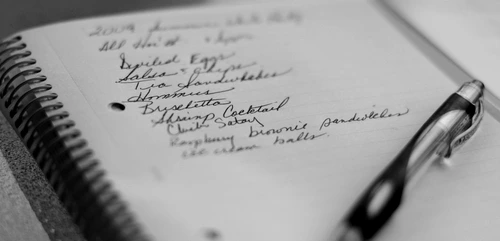 2009 Summer White Party
All Hor'd
Deviled Eggs
Salsa & Chips
Tea Sandwhches
Hommus
Bruschetta
Shrimp Cocktail
Chick Satay
Raspberry brownie sandwiches
ice cream balls